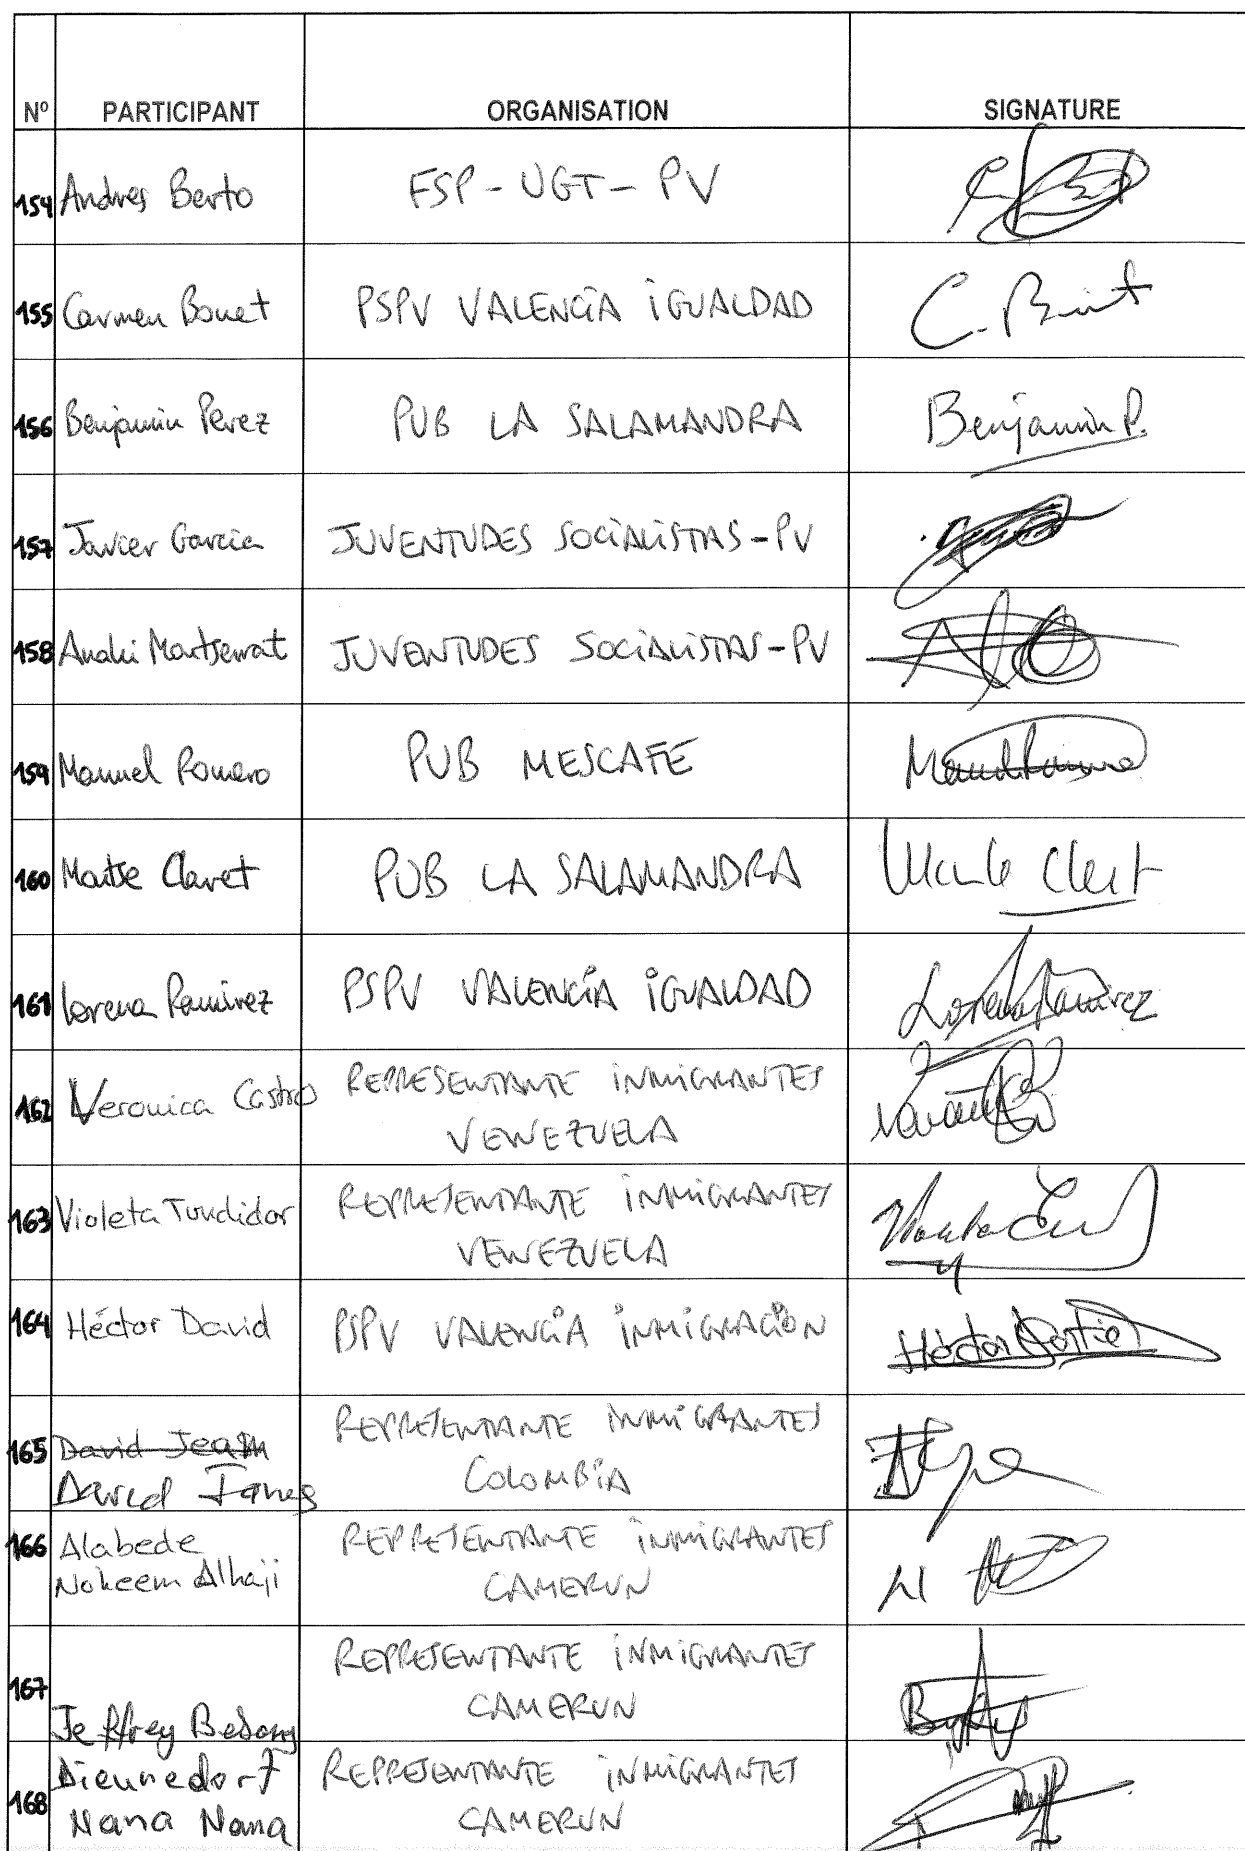 Nº PARTICIPANT ORGANISATION SIGNATURE
154 Andres Berto FSP - UGT - PV
155 Carmen Bonet PSPV VALENCIA IGUALDAD C. B
156 Benjamin Perez PUB LA SALAMANDRA Benjamin P.
157 Javier Garcia JUVENTUDES SOCIALISTAS - PV
158 Anahi Montserrat JUVENTUDES SOCIALISTAS - PV
159 Manuel Romero PUB MESCAFE
160 Maite Claret PUB LA SALAMANDRA
161 Lorena Ramirez PSPV VALENCIA IGUALDAD Lorena Ramirez
162 Veronica Castro REPRESENTANTE INMIGRANTES
VENEZUELA
163 Violeta Tundidor REPRESENTANTE INMIGRANTES
VENEZUELA
164 Héctor David PSPV VALENCIA INMIGRACIÓN Héctor
165 David Jeam REPRESENTANTE INMIGRANTES
David James COLOMBIA
166 Alabede REPRESENTANTE INMIGRANTES
Nokeem Alhaji CAMERUN
167 REPRESENTANTE INMIGRANTES
Jeffrey Besong CAMERUN
168 Dieunedort REPRESENTANTE INMIGRANTES
Nana Nana CAMERUN